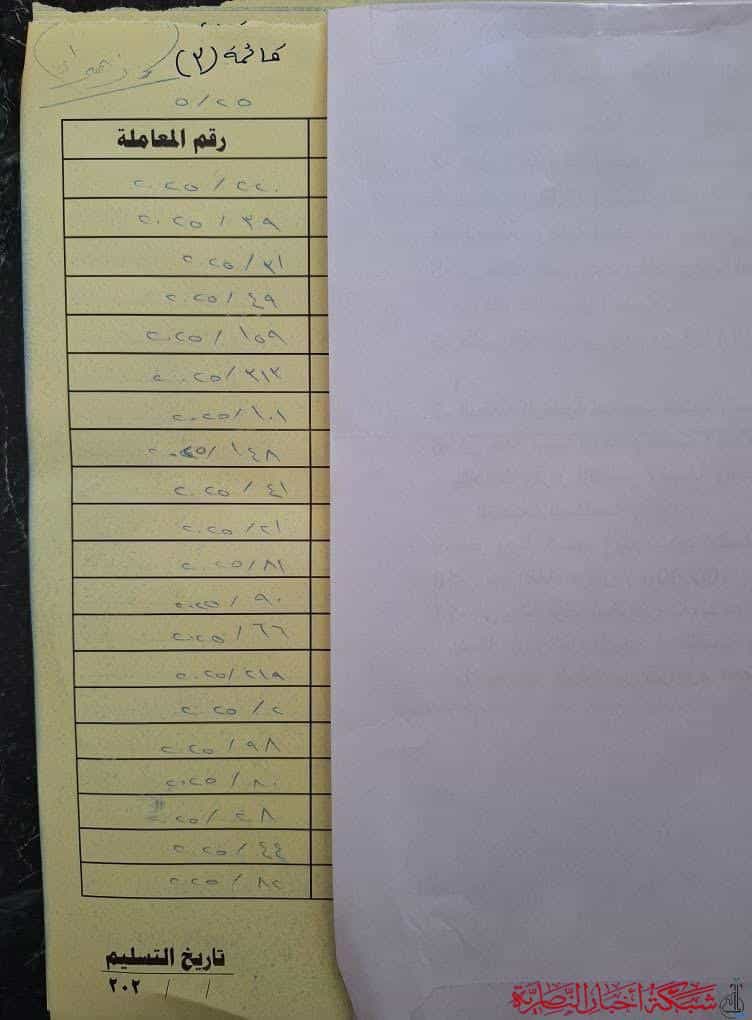 قائمة (٣)
٢٥/٥
رقم المعاملة
٢٢٠ / ٢٠٢٥
٣٩ / ٢٠٢٥
٣١ / ٢٠٢٥
٤٩ / ٢٠٢٥
١٥٩ / ٢٠٢٥
٣١٣ / ٢٠٢٥
١٠١ / ٢٠٢٥
١٤٨ / ٢٠٢٥
٤١ / ٢٠٢٥
٢١ / ٢٠٢٥
٨١ / ٢٠٢٥
٩٠ / ٢٠٢٥
٦٦ / ٢٠٢٥
٢١٨ / ٢٠٢٥
٢ / ٢٠٢٥
٩٨ / ٢٠٢٥
٨٠ / ٢٠٢٥
٢٨ / ٢٠٢٥
٤٤ / ٢٠٢٥
٨٢ / ٢٠٢٥
تاريخ التسليم
/ / ٢٠٢
شبكة أخبار الناصرية